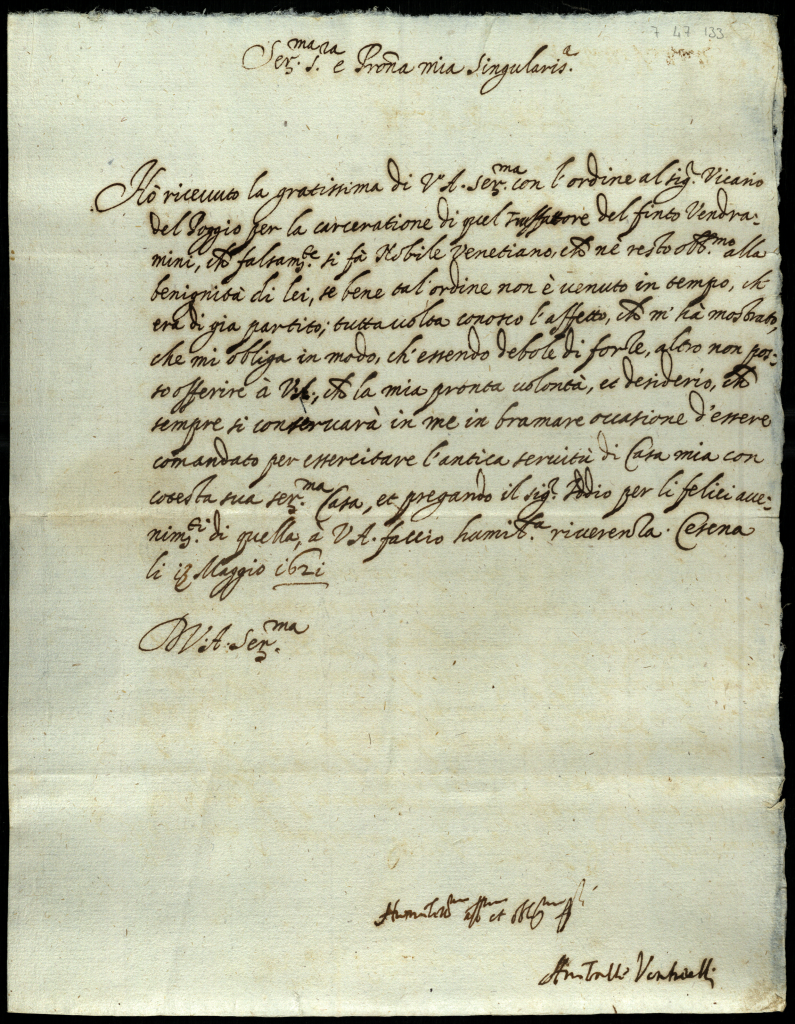 7 47 133
Ser.ma S.ra e Pron̄a mia Singularis.a
Hò riceuuto la gratissima di V.A. Ser.ma con l'ordine al sig.r Vicario
del Poggio per la carceratione di quel truffatore del finto Vendra-
mini, che falsam.te si fà Nobile Venetiano, che nè resto obb.mo alla
benignità di lei, se bene tal'ordine non è venuto in tempo, ch'
era di gia partito; tutta uolta conosco l'affetto, che m'hà mostrato,
che mi obliga in modo, ch'essendo debole di forze, altro non pos-
so offerire à V.A., che la mia pronta uolontà, et desiderio, che
sempre si conseruarà in me in bramare occasione d'essere
comandato per essercitare l'antica seruitù di Casa mia con
cotesta sua Ser.ma Casa, et pregando il sig.r Iddio per li felici aue-
nim.ti di quella, à V.A. faccio humil.ma riuerenza. Cesena
li Maggio 1621
Di V.A. Ser.ma
et